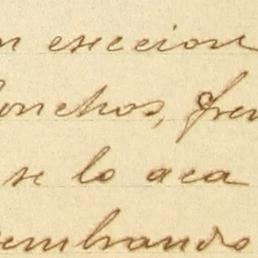 n eseccion
onchos, fren
se lo aca
sembrando